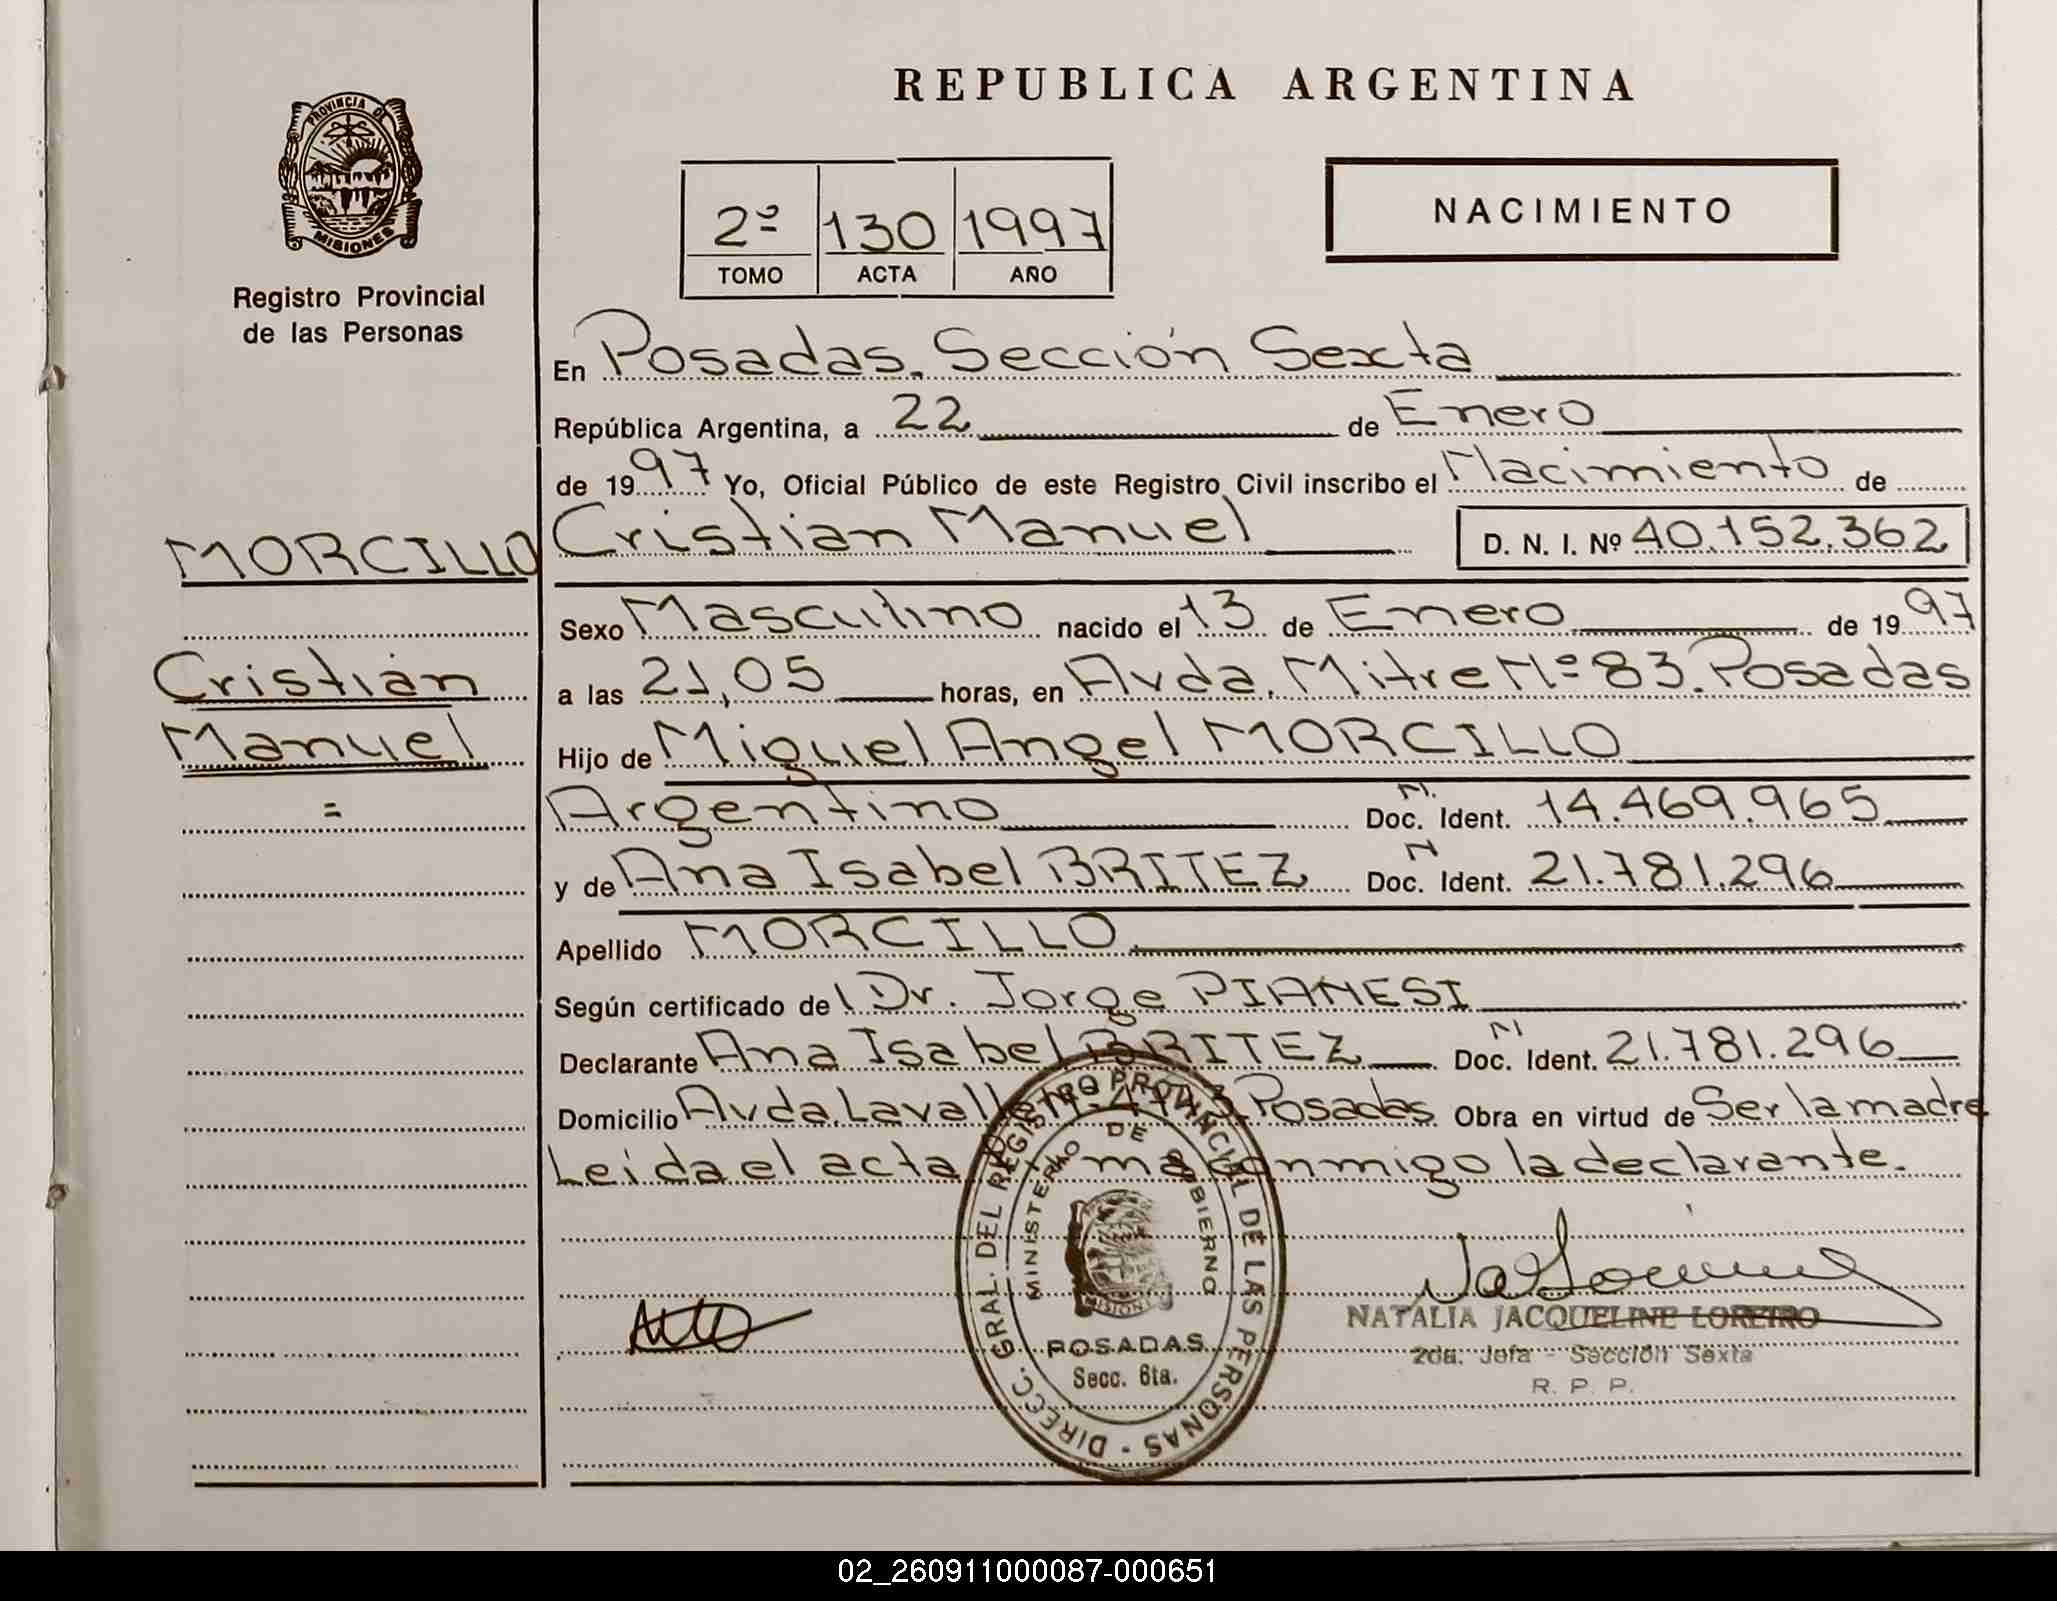 REPUBLICA ARGENTINA
PROVINCIA DE
MISIONES
Registro Provincial
de las Personas
2º 130 1997
TOMO ACTA AÑO
NACIMIENTO
En Posadas. Sección Sexta
República Argentina, a 22 de Enero
de 1997 Yo, Oficial Público de este Registro Civil inscribo el Nacimiento de
MORCILLO
Cristian Manuel D. N. I. Nº 40.152.362
Sexo Masculino nacido el 13 de Enero de 1997
Cristian
Manuel
=
a las 21,05 horas, en Avda. Mitre Nº 83. Posadas
Hijo de Miguel Angel MORCILLO
Argentino Doc. N. Ident. 14.469.965
y de Ana Isabel BRITEZ Doc. N Ident. 21.781.296
Apellido MORCILLO
Según certificado del Dr. Jorge PIANESI
Declarante Ana Isabel BRITEZ Doc. N Ident. 21.781.296
Domicilio Avda. Posadas. Obra en virtud de Ser la madre
Leida el acta la declarante.
DIRECC. GRAL. DEL REGISTRO PROVINCIAL DE LAS PERSONAS -
MINISTERIO DE GOBIERNO
MISIONES
POSADAS
Secc. 6ta.
NATALIA JACQUELINE LOREIRO
2da. Jefa - Sección Sexta
R. P. P.
02_260911000087-000651